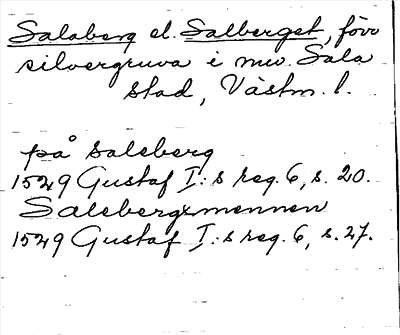 Salaberg el. Salberget, förr
silvergruva i nuv. Sala
stad, Västm. l.
på saleberg
1529 Gustaf I:s reg. 6, s. 20.
Salebergxmennen
1529 Gustaf I:s reg. 6, s. 27.